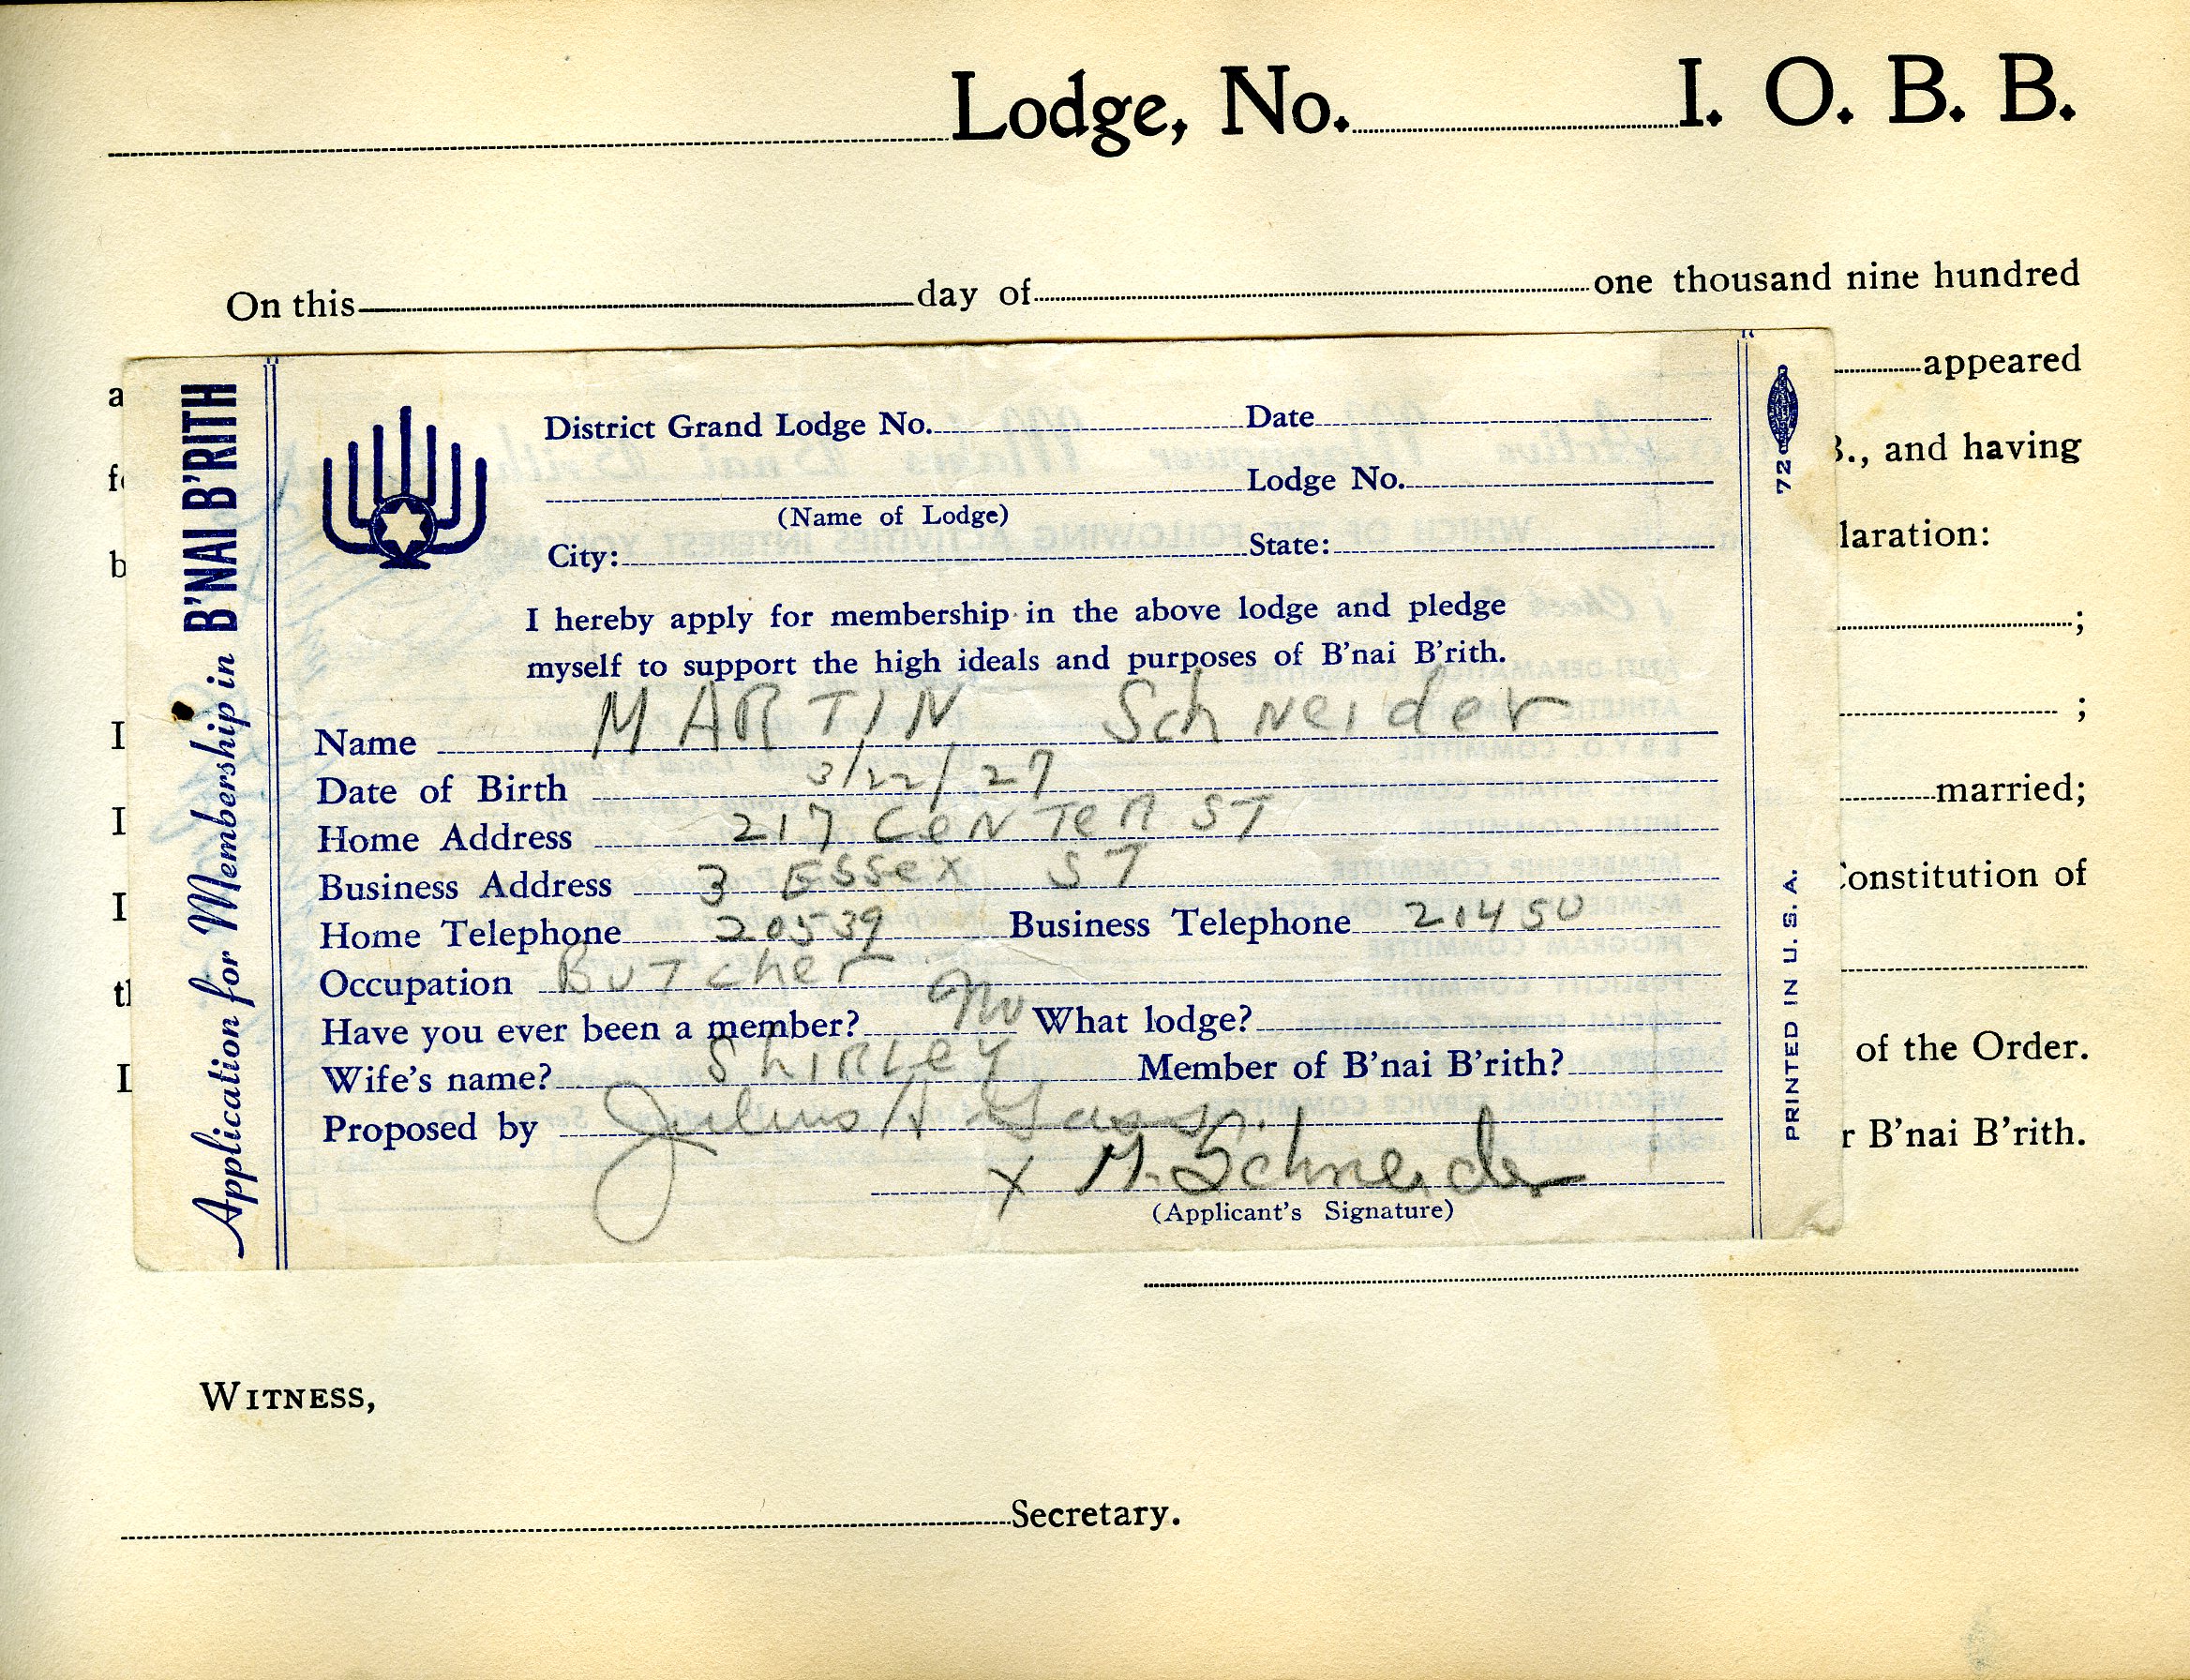 Lodge, No. I. O. B. B.
On this day of one thousand nine hundred
a appeared
B., and having
b laration:
;
I ;
I married;
I Constitution of
of the Order.
I r B'nai B'rith.
Application for Membership in B'NAI B'RITH
District Grand Lodge No. Date
Lodge No.
(Name of Lodge)
City: State:
I hereby apply for membership in the above lodge and pledge
myself to support the high ideals and purposes of B'nai B'rith.
Name MARTIN Schneider
Date of Birth 3/22/27
Home Address 217 CeNTeR ST
Business Address 3 ESSex ST
Home Telephone 20539 Business Telephone 21450
Occupation BuTcher
Have you ever been a member? no What lodge?
Wife's name? ShIRLey Member of B'nai B'rith?
Proposed by Julius A
x M. Schneider
(Applicant's Signature)
72
PRINTED IN U. S. A.
WITNESS,
Secretary.